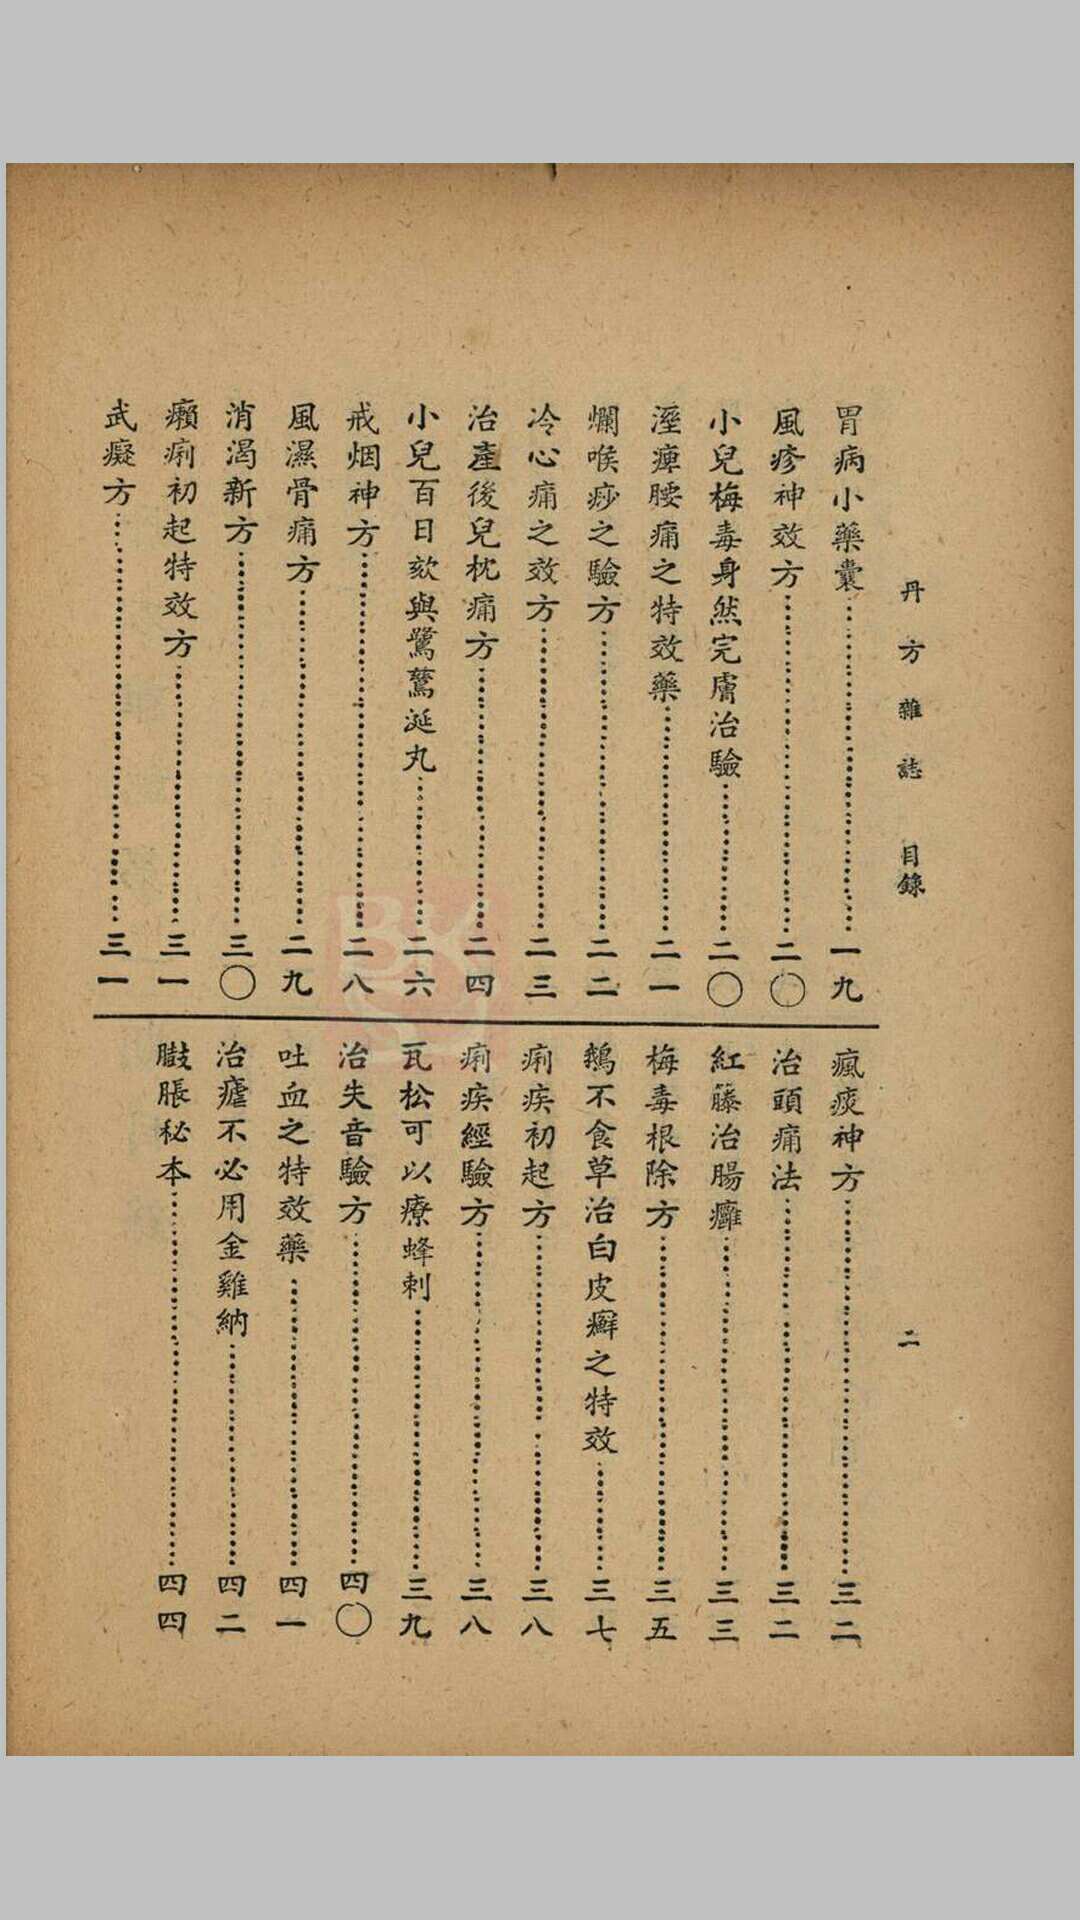 丹方雜誌 目錄 二
胃病小藥囊……一九
風疹神效方……二〇
小兒梅毒身然完膚治驗……二〇
溼痺腰痛之特效藥……二一
爛喉痧之驗方……二二
冷心痛之效方……二三
治產後兒枕痛方……二四
小兒百日欬與鷺鷥涎丸……二六
戒烟神方……二八
風濕骨痛方……二九
消渴新方……三〇
癩痢初起特效方……三一
武癡方……三一
瘋痰神方……三二
治頭痛法……三二
紅籐治腸癰……三三
梅毒根除方……三五
鵝不食草治白皮癬之特效……三七
痢疾初起方……三八
痢疾經驗方……三八
瓦松可以療蜂刺……三九
治失音驗方……四〇
吐血之特效藥……四一
治瘧不必用金雞納……四二
臌脹秘本……四四